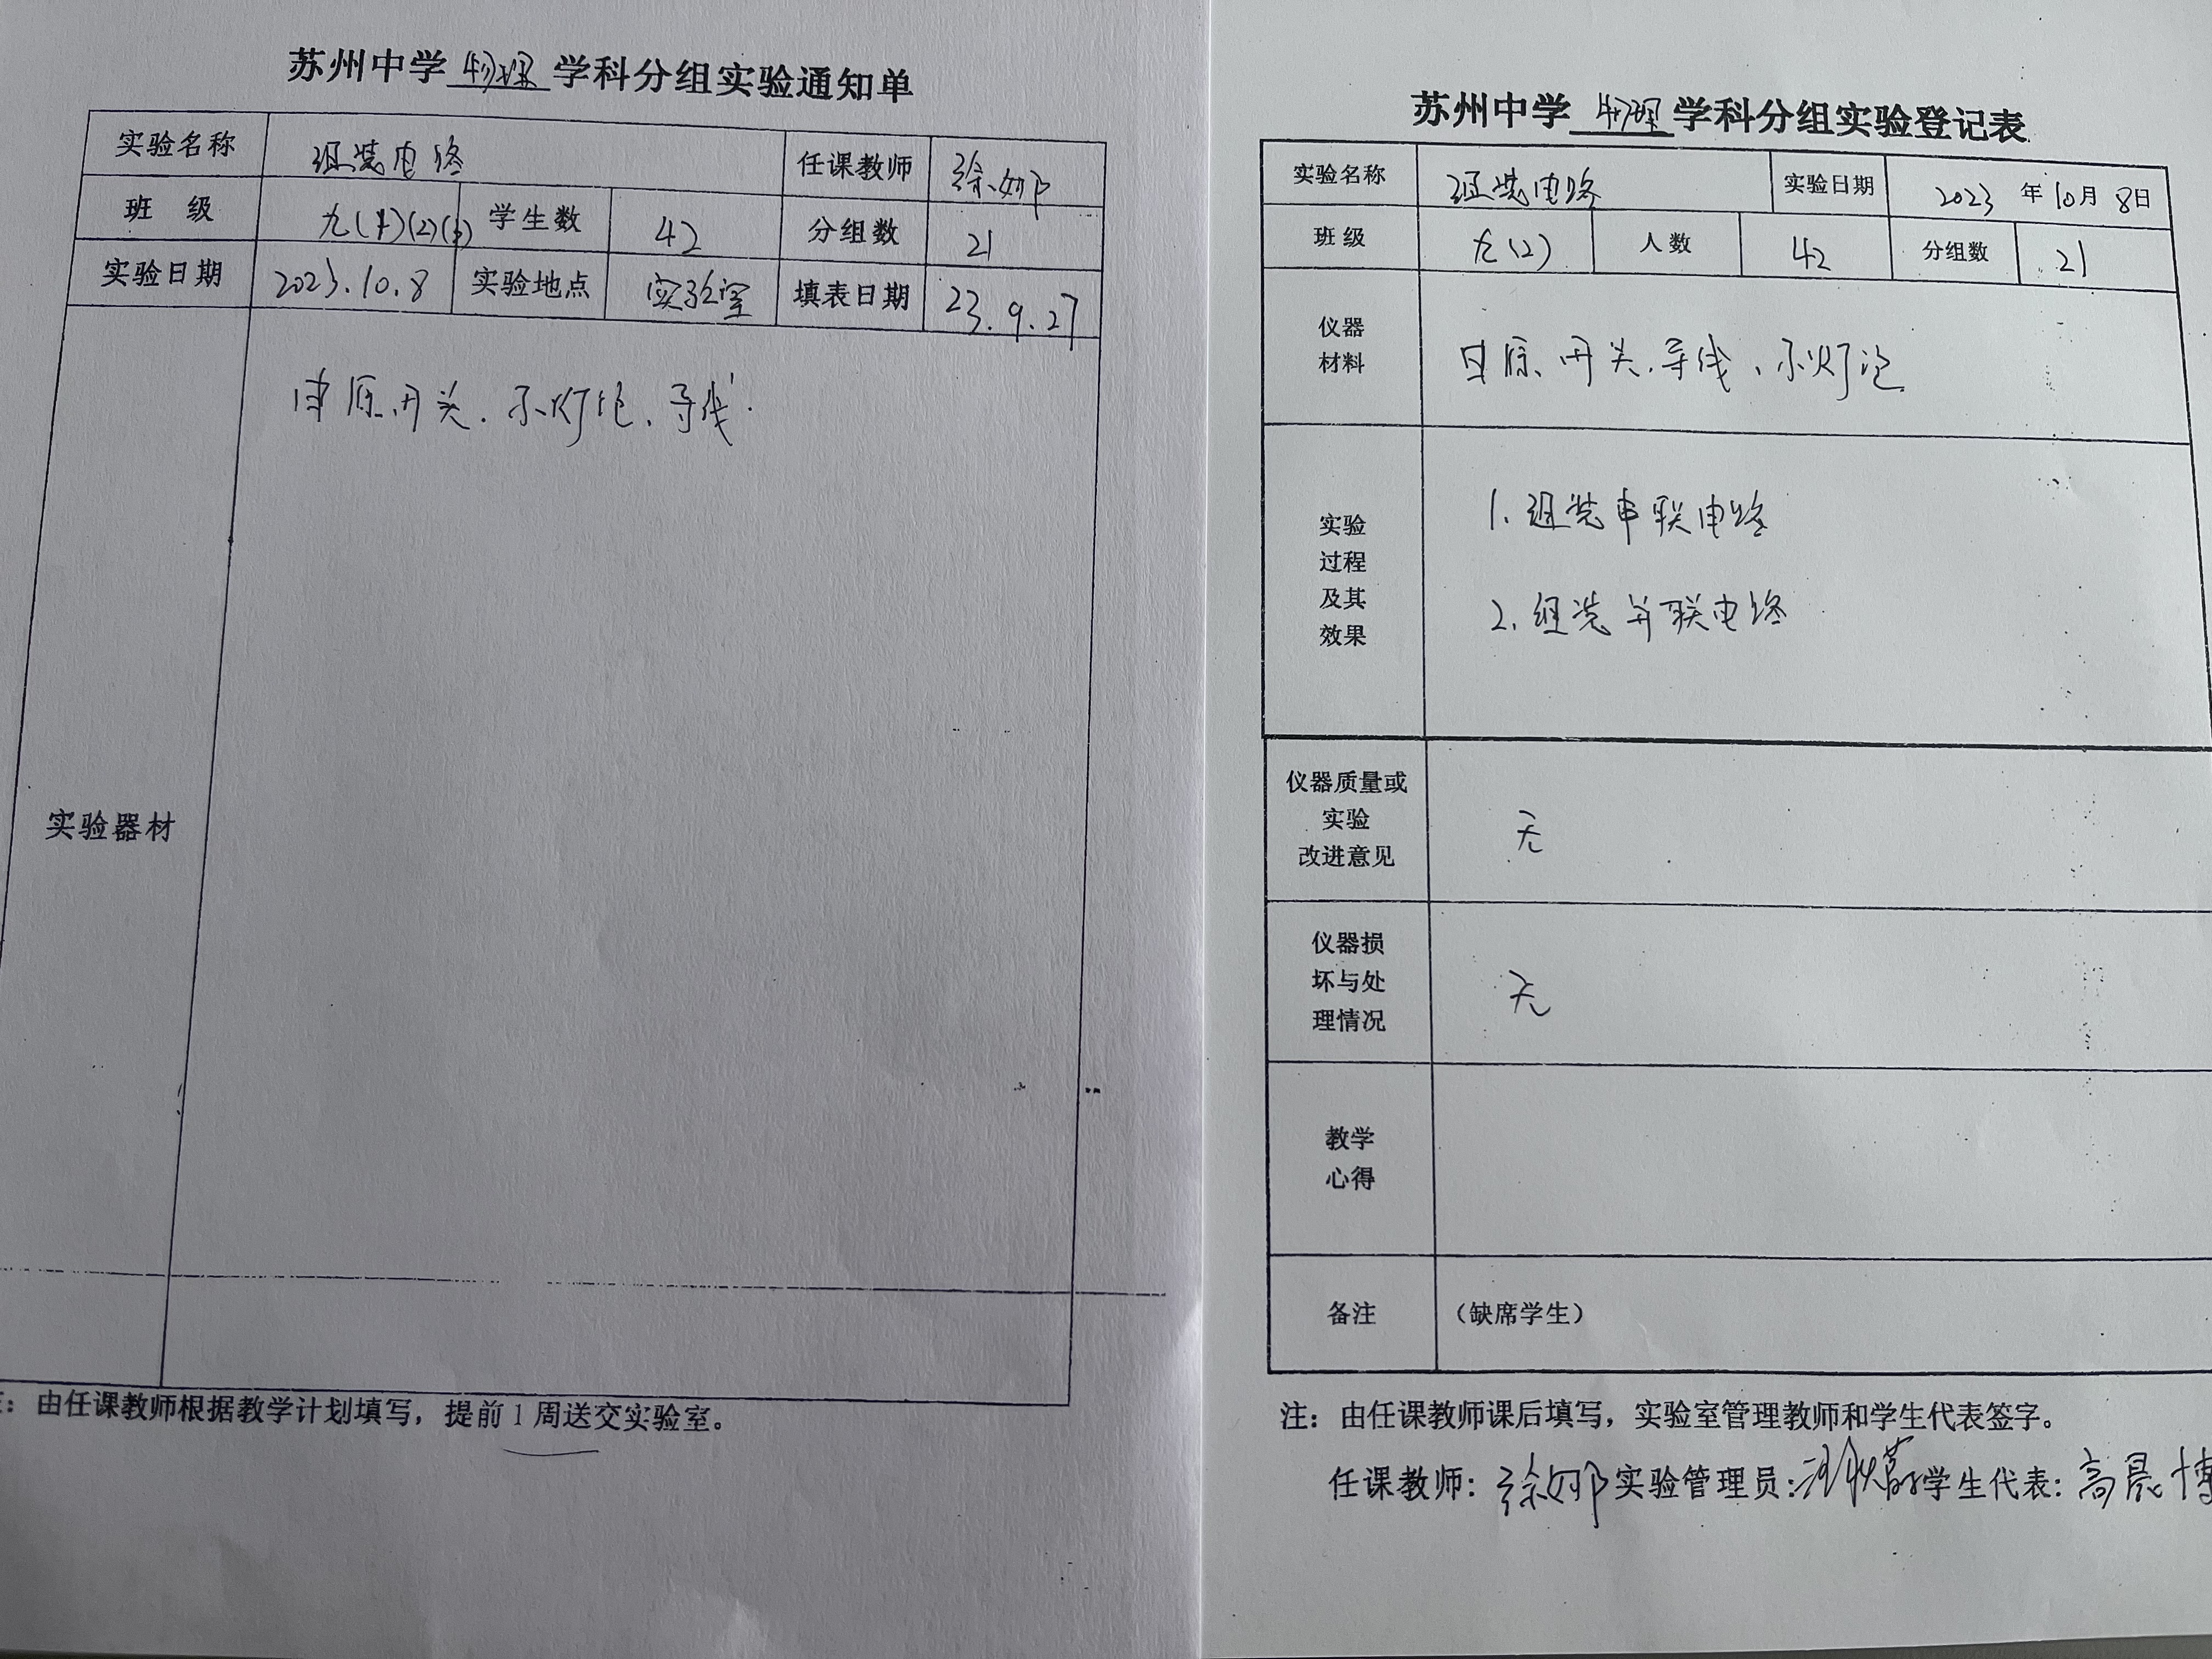 苏州中学物理学科分组实验通知单
实验名称 组装电路 任课教师 徐如
班 级 九(1)(2)(3) 学生数 42 分组数 21
实验日期 2023.10.8 实验地点 实验室 填表日期 23.9.27
实验器材
电源、开关、小灯泡、导线.
注：由任课教师根据教学计划填写，提前1周送交实验室。
苏州中学物理学科分组实验登记表
实验名称 组装电路 实验日期 2023 年 10 月 8 日
班级 九(2) 人数 42 分组数 21
仪器
材料
电源、开关、导线、小灯泡
实验
过程
及其
效果
1. 组装串联电路
2. 组装并联电路
仪器质量或
实验
改进意见
无
仪器损
坏与处
理情况
无
教学
心得
备注 （缺席学生）
注：由任课教师课后填写，实验室管理教师和学生代表签字。
任课教师：徐 实验管理员： 学生代表：高晨博